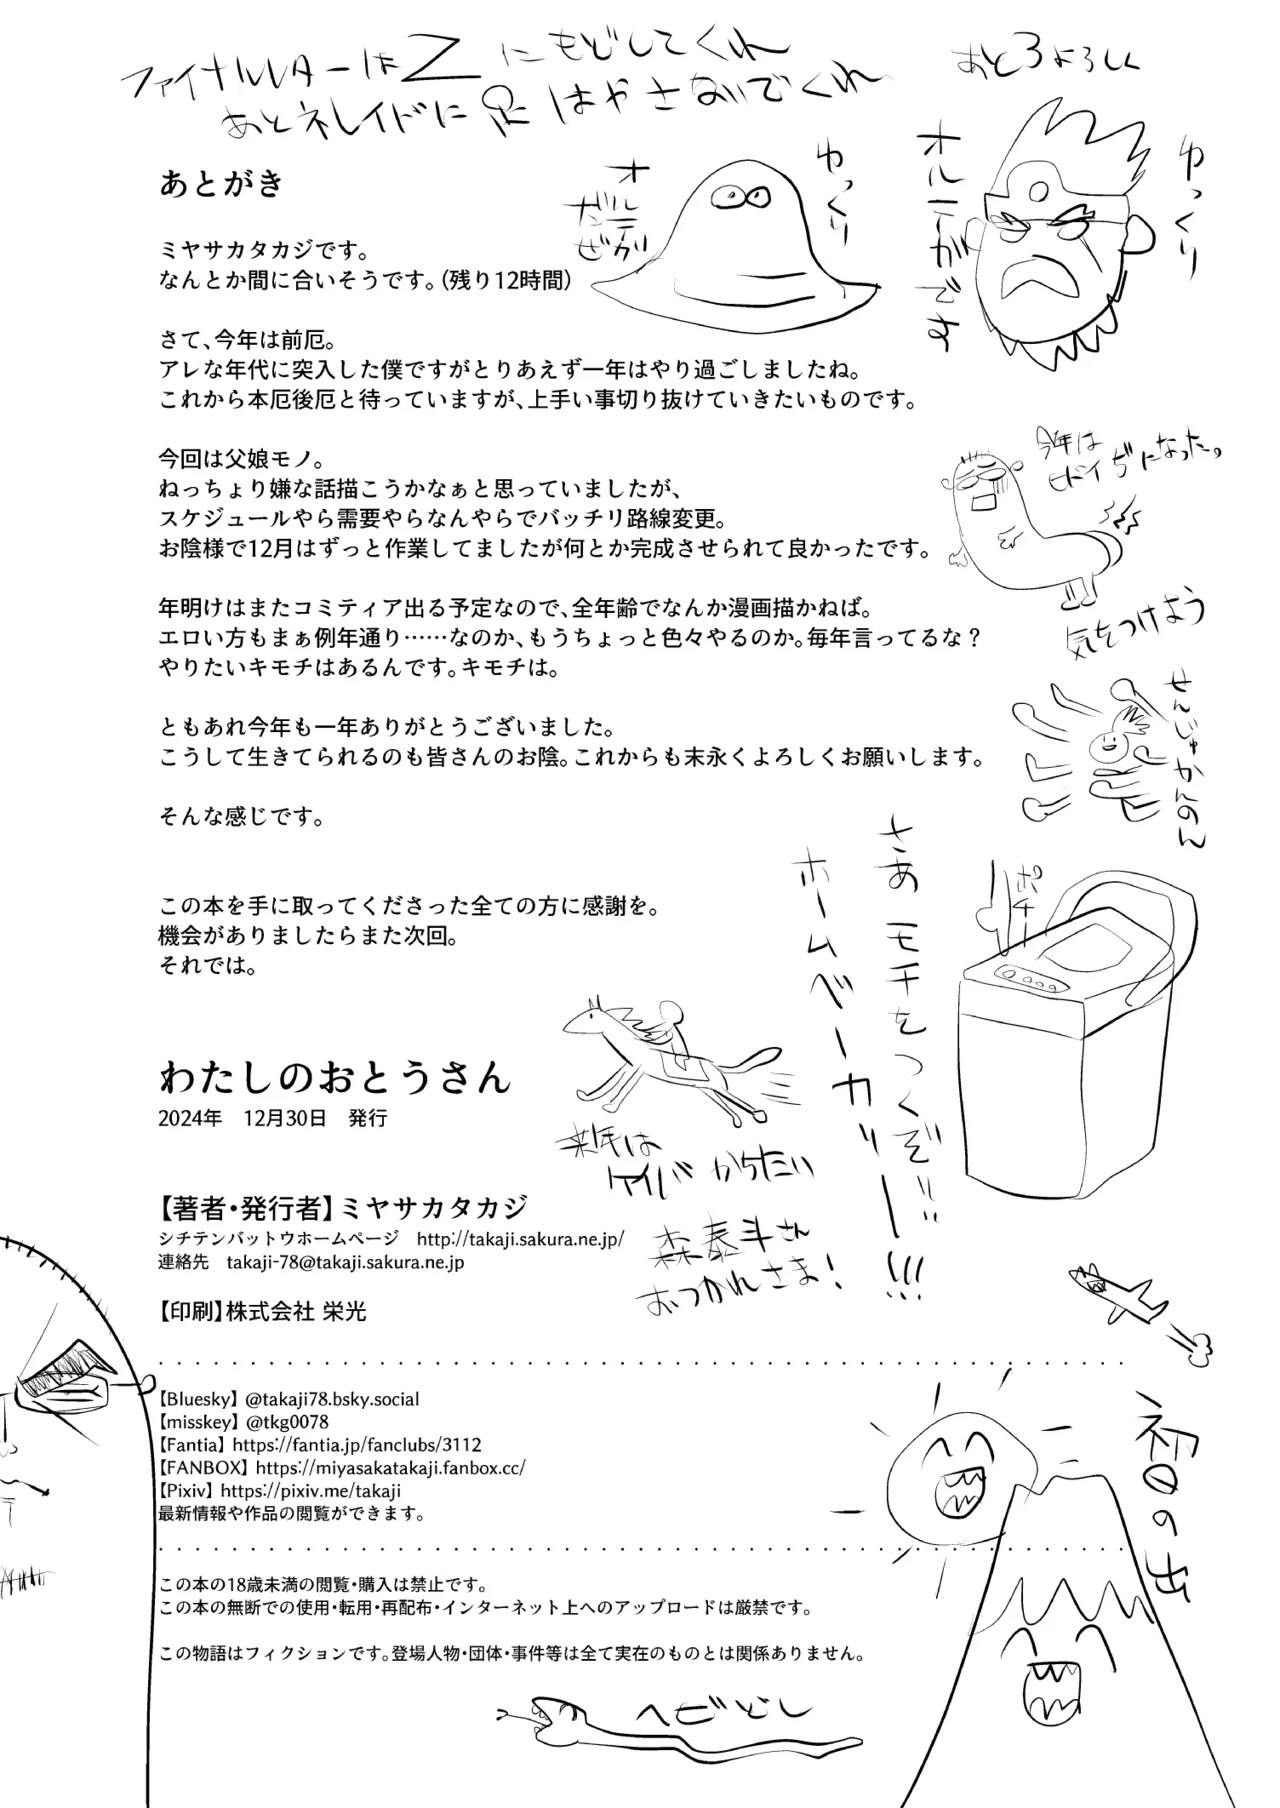 ファイナルレターはZにもどしてくれ
あとネレイドに足はやさないでくれ
あと3よろしく
ゆっくり
オルテガです
ゆっくり
オルテガ
だぜ
あとがき
ミヤサカタカジです。
なんとか間に合いそうです。(残り12時間)
さて、今年は前厄。
アレな年代に突入した僕ですがとりあえず一年はやり過ごしましたね。
これから本厄後厄と待っていますが、上手い事切り抜けていきたいものです。
今回は父娘モノ。
ねっちょり嫌な話描こうかなぁと思っていましたが、
スケジュールやら需要やらなんやらでバッチリ路線変更。
お陰様で12月はずっと作業してましたが何とか完成させられて良かったです。
今年は
ヒドイぢになった。
気をつけよう
年明けはまたコミティア出る予定なので、全年齢でなんか漫画描かねば。
エロい方もまぁ例年通り……なのか、もうちょっと色々やるのか。毎年言ってるな？
やりたいキモチはあるんです。キモチは。
せんじゅかんのん
ともあれ今年も一年ありがとうございました。
こうして生きてられるのも皆さんのお陰。これからも末永くよろしくお願いします。
そんな感じです。
さあ モチをつくぞ!!
ホームベーカリー!!!
ポチ
この本を手に取ってくださった全ての方に感謝を。
機会がありましたらまた次回。
それでは。
わたしのおとうさん
2024年　12月30日　発行
来年は
ケイバ かちたい
森泰斗さん
おつかれさま!
【著者・発行者】ミヤサカタカジ
シチテンバットウホームページ　http://takaji.sakura.ne.jp/
連絡先　takaji-78@takaji.sakura.ne.jp
【印刷】株式会社 栄光
【Bluesky】@takaji78.bsky.social
【misskey】@tkg0078
【Fantia】https://fantia.jp/fanclubs/3112
【FANBOX】https://miyasakatakaji.fanbox.cc/
【Pixiv】https://pixiv.me/takaji
最新情報や作品の閲覧ができます。
初日の出
この本の18歳未満の閲覧・購入は禁止です。
この本の無断での使用・転用・再配布・インターネット上へのアップロードは厳禁です。
この物語はフィクションです。登場人物・団体・事件等は全て実在のものとは関係ありません。
へビどし